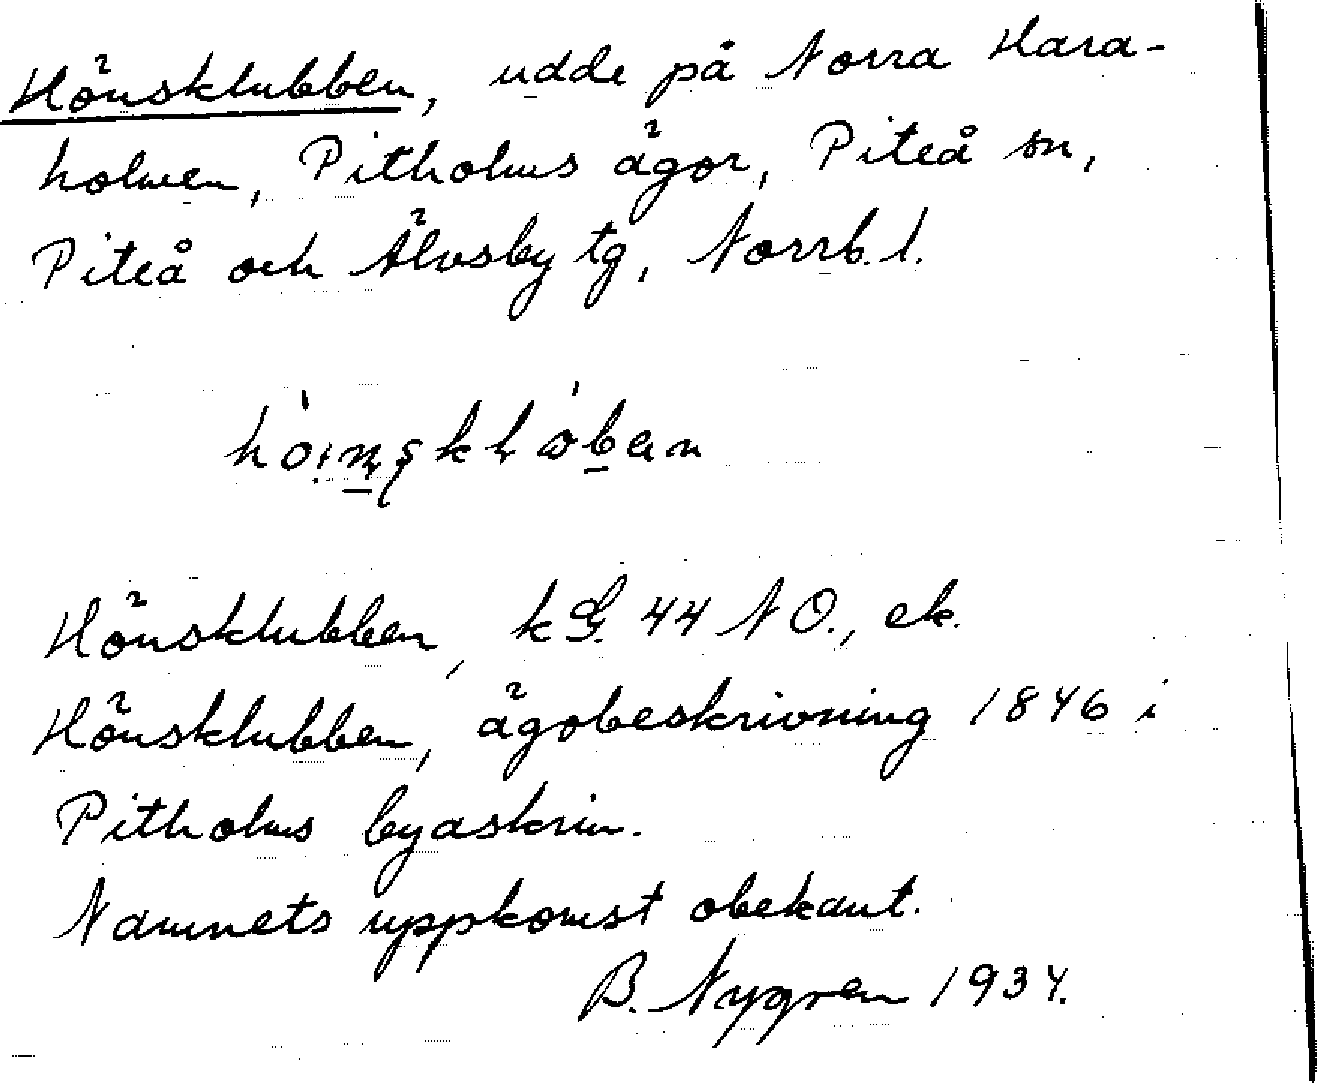 Hönsklubben, udde på Norra Hara-
holmen, Pitholms ägor, Piteå sn,
Piteå och Älvsby tg, Norrb. l.
Hönsklubben, kG. 44 N O., ek.
Hönsklubben, ägobeskrivning 1846 i
Pitholms byaskrin.
Namnets uppkomst obekant.
B. Nygren 1934.